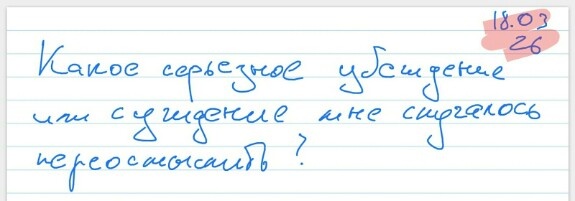 18.03
26
Какое серьезное убеждение
или суждение мне случалось
переосмыслить?